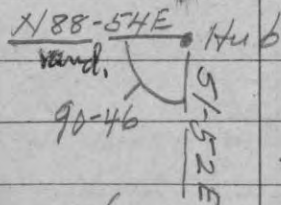 N88-54E
Hub
rand.
90-46
S1-52E